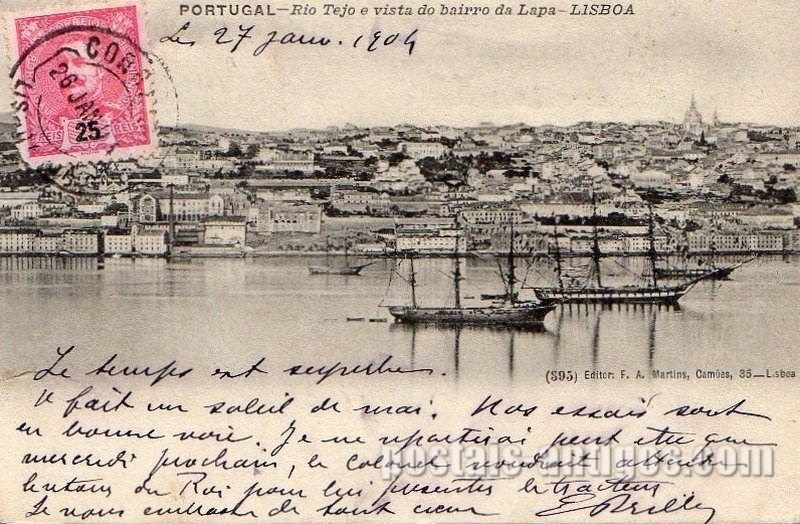 PORTUGAL—Rio Tejo e vista do bairro da Lapa—LISBOA
Le 27 janv. 1904
CORREIO
26 JAN
25
REIS REIS
(395) Editor: F. A. Martins, Camões, 35—Lisboa
Le temps est superbe.
Il fait un soleil de mai. Nos essais sont
en bonne voie. Je ne repartirai peut être que
mercredi prochain, le colonel voudrait
du Roi pour lui présenter le tracteur
Je vous embrasse de tout coeur
postais-antigos.com